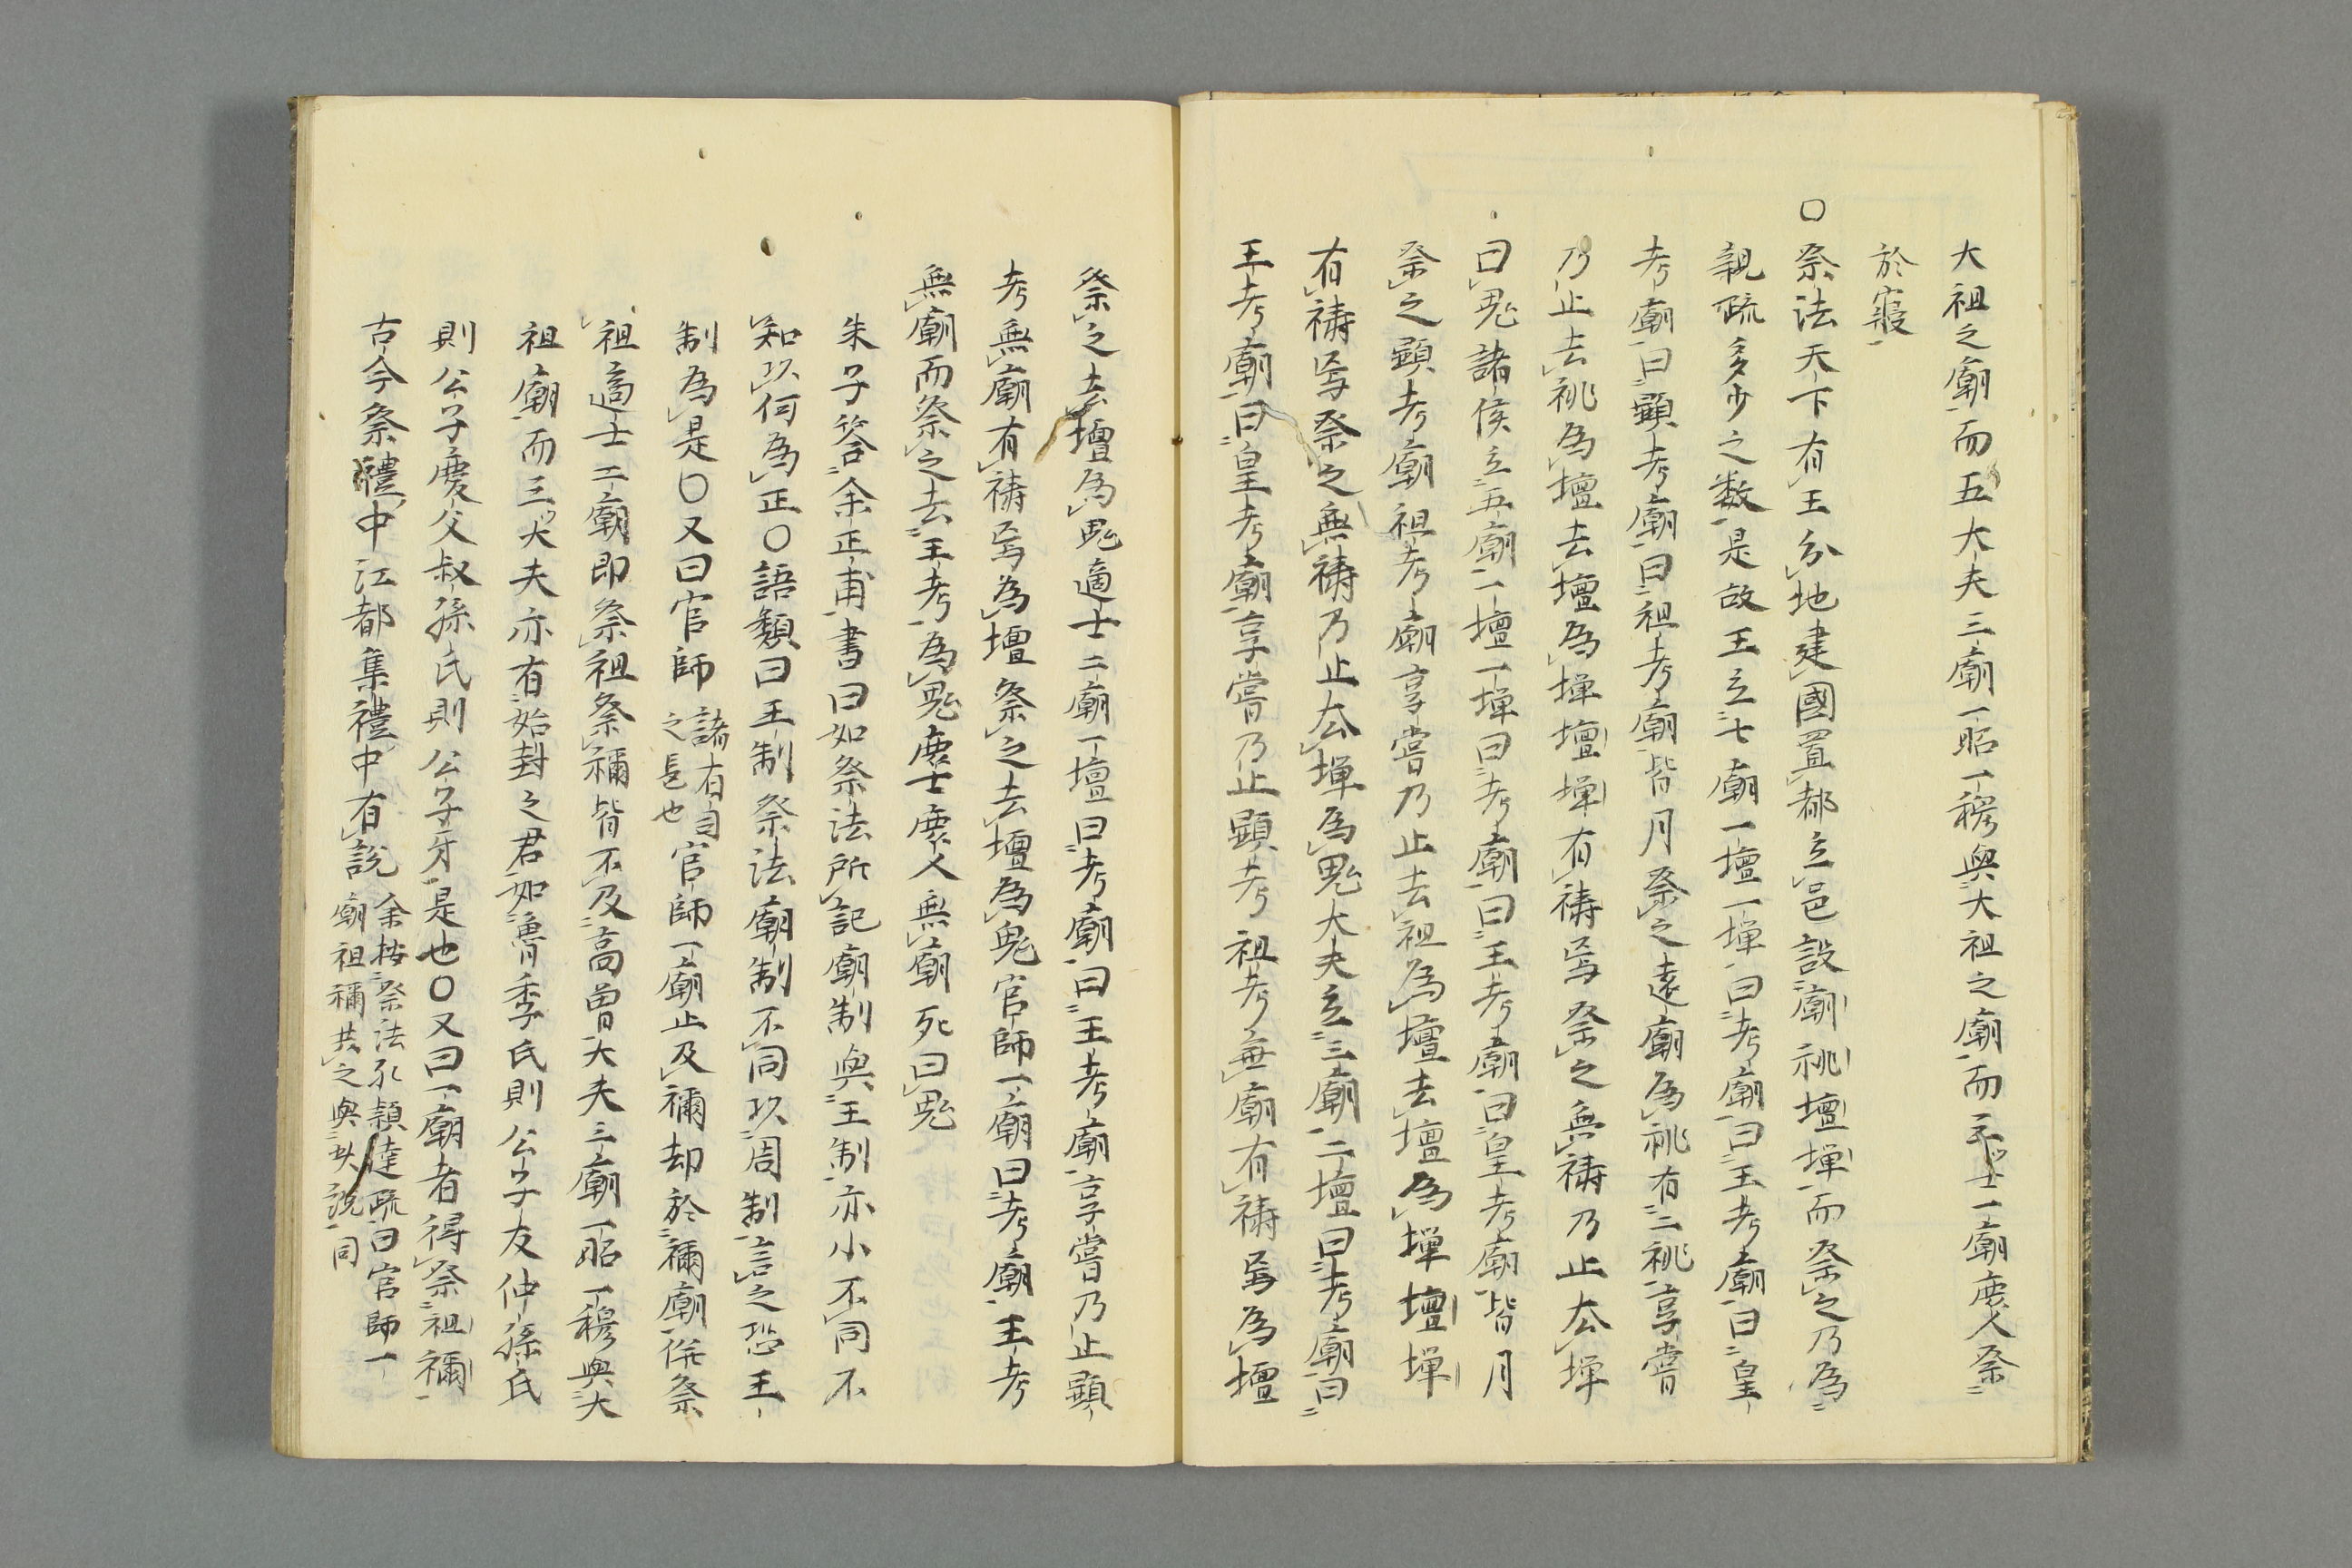 大祖之廟而五大夫三廟一昭一穆與大祖之廟而三士一廟庻人祭
於寢
○祭法天下有王分地建國置都立邑設廟祧壇墠而祭之乃為
親疏多少之数是故王立七廟一壇一墠曰考廟曰王考廟曰皇
考廟曰顯考廟曰祖考廟皆月祭之遠廟為祧有二祧享嘗
乃止去祧為壇去壇為墠壇墠有禱焉祭之無禱乃止厺墠
曰鬼諸侯立五廟一壇一墠曰考廟曰王考廟曰皇考廟皆月
祭之顯考廟祖考廟享嘗乃止去祖為壇去壇為墠壇墠
有禱焉祭之無禱乃止厺墠為鬼大夫立三廟二壇曰考廟曰
王考廟曰皇考廟享嘗乃止顯考祖考無廟有禱焉為壇
祭之去壇為鬼適士二廟一壇曰考廟曰王考廟享嘗乃止顯
考無廟有禱焉為壇祭之去壇為鬼官師一廟曰考廟王考
無廟而祭之去王考為鬼庶士庻人無廟死曰鬼
朱子答余正甫書曰如祭法所記廟制與王制亦小不同不
知以何為正○語類曰王制祭法廟制不同以周制言之恐王
制為是○又曰官師諸有司之長也官師一廟止及禰却於禰廟併祭
祖適士二廟即祭祖祭禰皆不及高曽大夫三廟一昭一穆與大
祖廟而三大夫亦有始封之君如魯季氏則公子友仲孫氏
則公子慶父叔孫氏則公子牙是也○又曰一廟者得祭祖禰
古今祭禮中江都集禮中有說余按祭法孔頴達疏曰官師一
廟祖禰共之與此說同